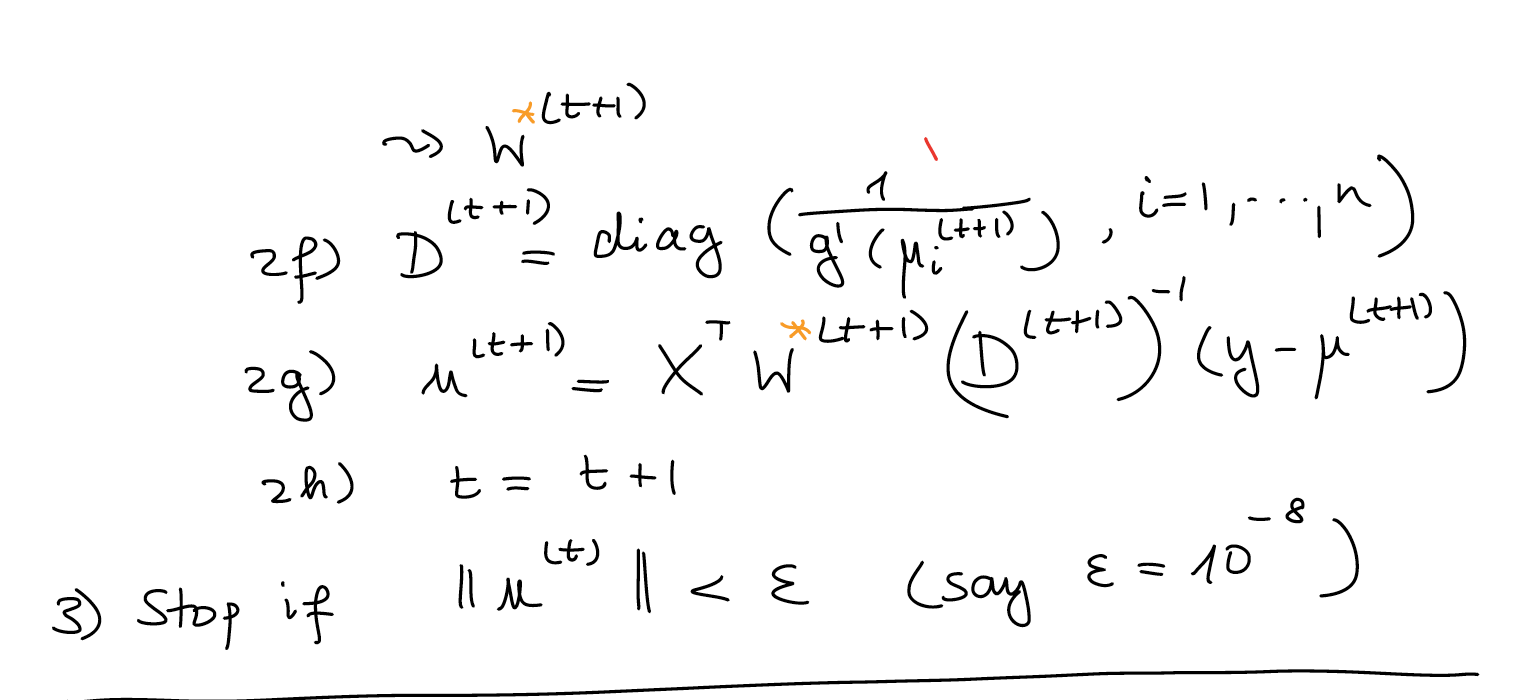 ⇝ W*^(t+1)
2f) D^(t+1) = diag ( 1 / g'(μ_i^(t+1)) , i=1,...,n )
2g) u^(t+1) = X^T W*^(t+1) (D^(t+1))^-1 (y - μ^(t+1))
2h) t = t+1
3) Stop if ‖u^(t)‖ < ε (say ε = 10^-8)